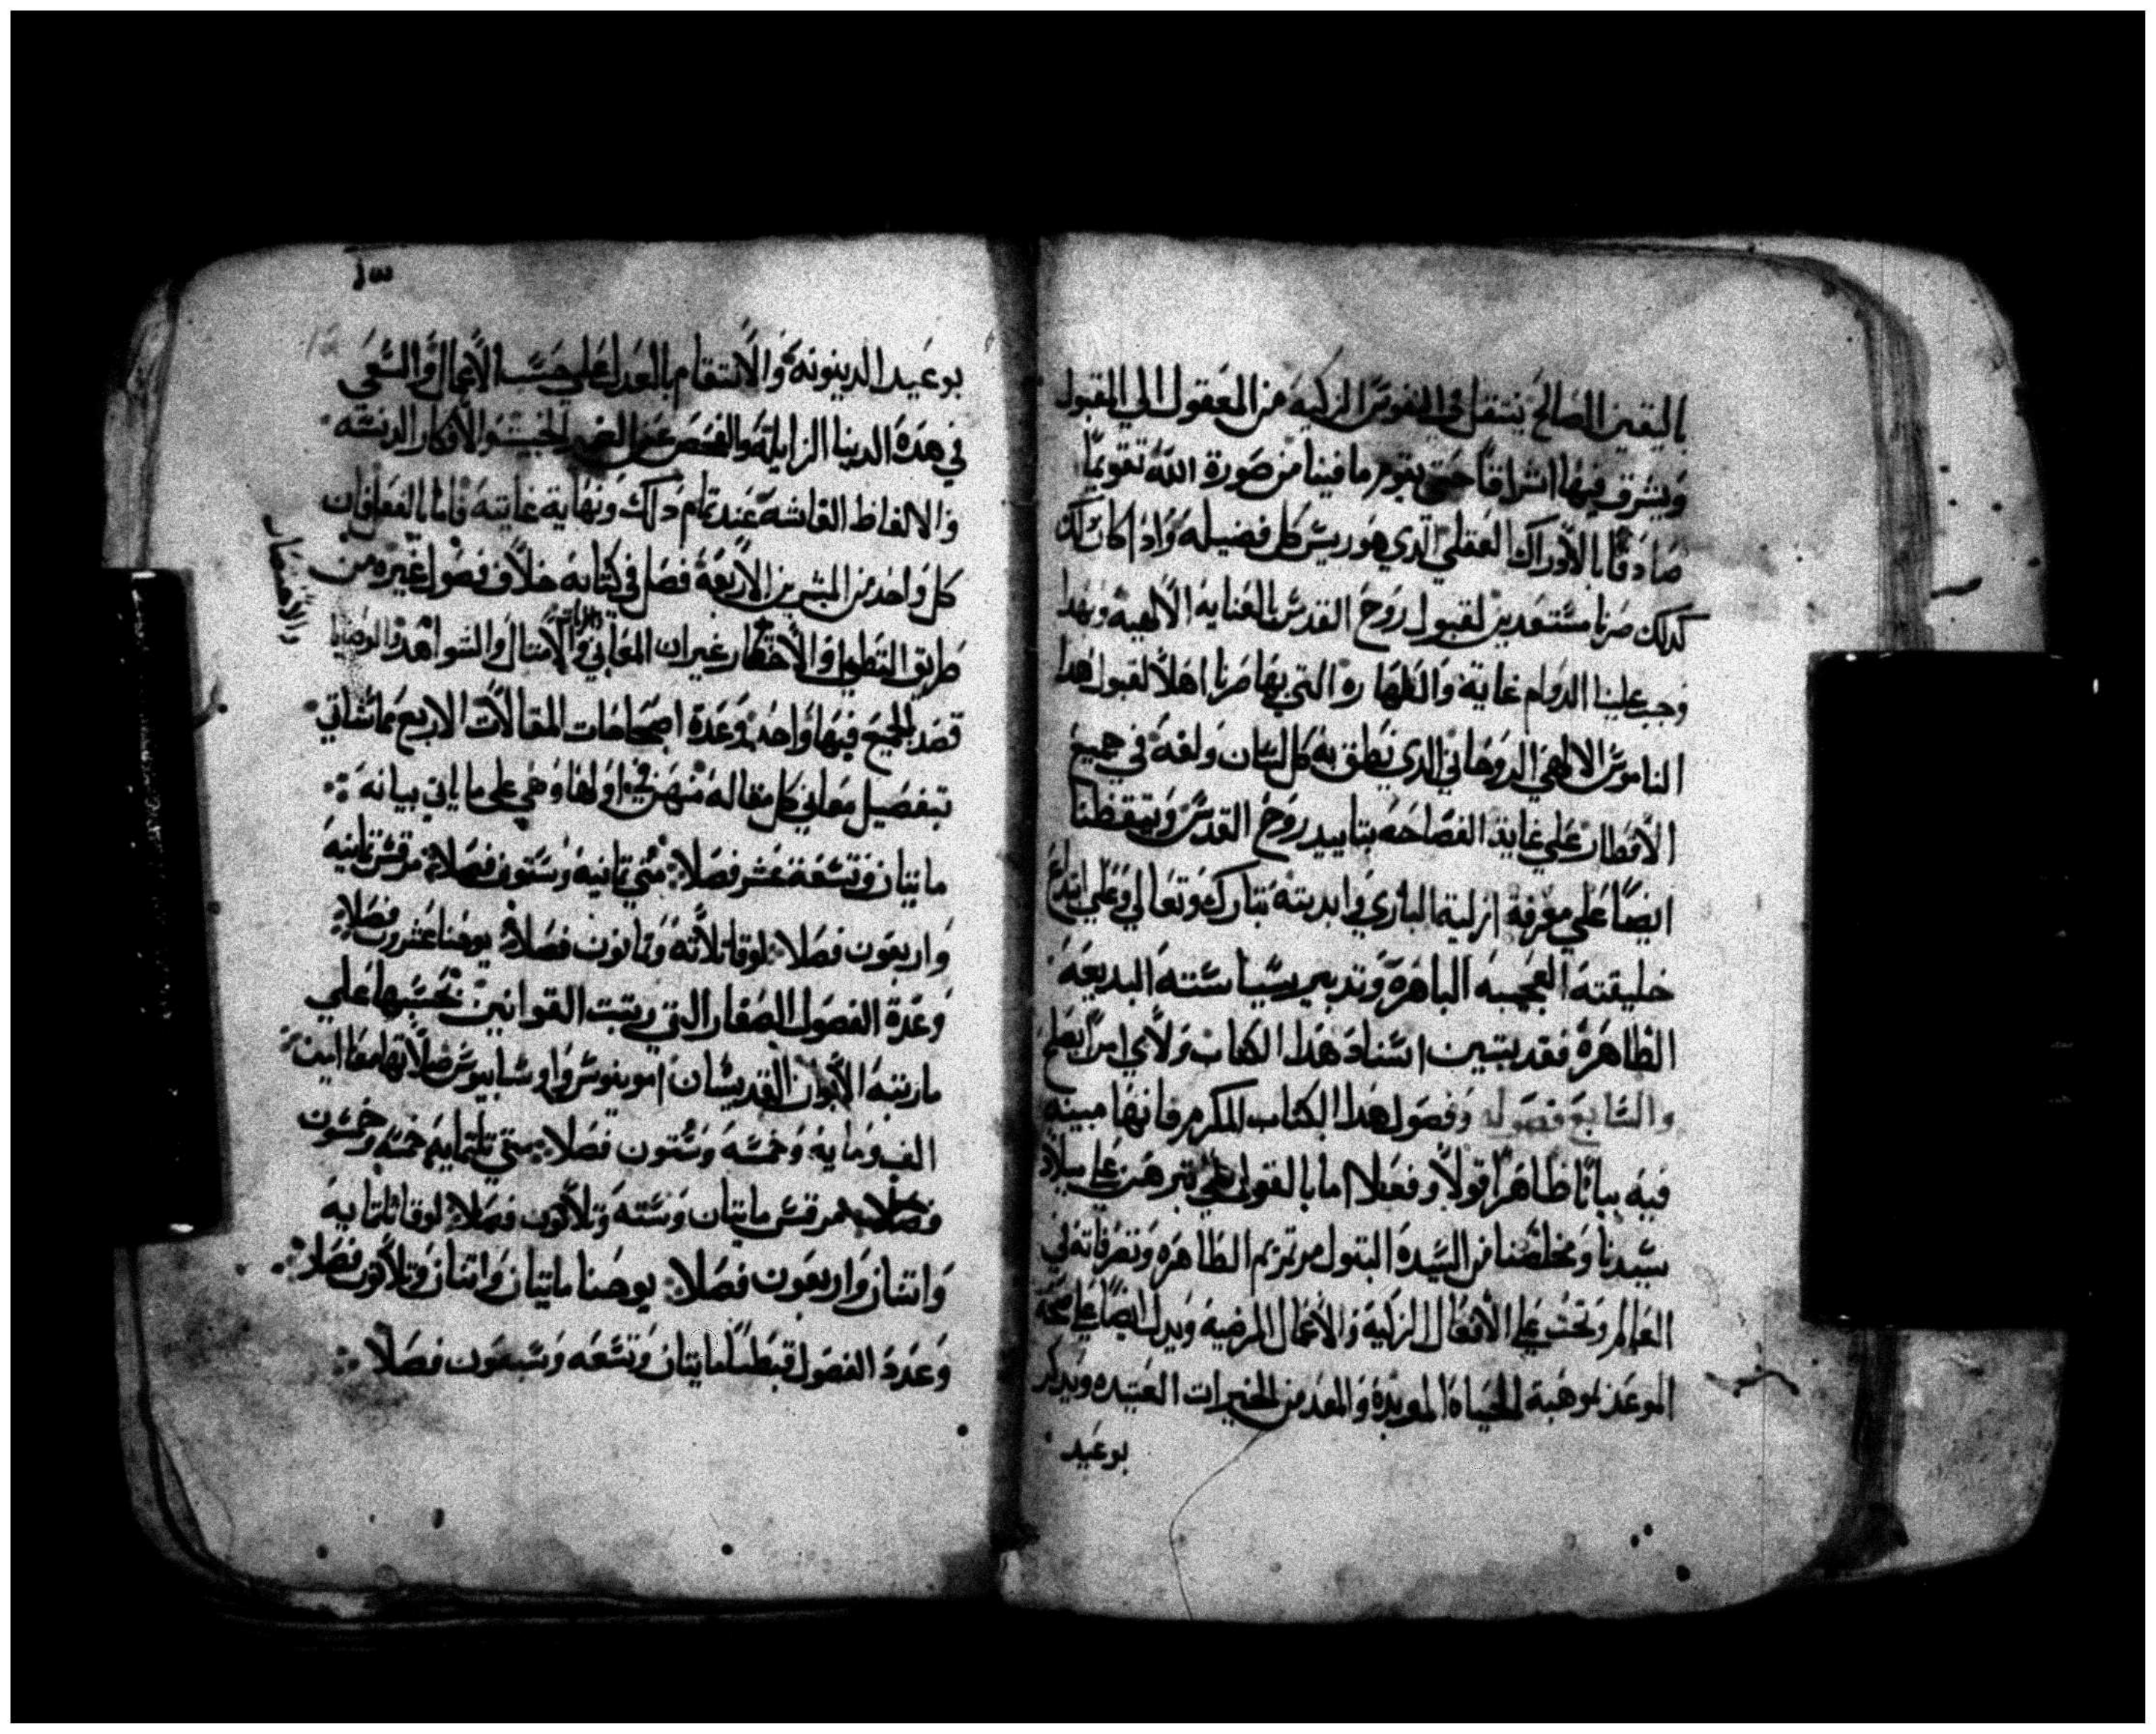 باليقين الصالح ينتقل في النفوس الزكيه من المعقول الي المقبول
ويشرق فيها اشراقا حتي يقوم ما فينا من صورة الله تقويما
صادقا بالادراك العقلي الدي هو ريس كل فضيله وادا كان لك
كدلك صرنا مستعدين لقبول روح القدس بالعنايه الالهيه وبهدا
وجب علينا الدوام غاية والطهاره التي بها صرنا اهلا لقبول هدا
الناموس الالهي الروحاني الدي نطق به كل لسان ولغه في جميع
الاقطار علي غاية الفصاحه بتاييد روح القدس وتيقظنا
ايضا علي معرفة ازلية الباري وابديته تبارك وتعالي وعلي ابداع
خليقته العجيبه الباهرة وتدبير سياسته البديعه
الظاهرة فقد يتبين اسناد هدا الكتاب ولاي امر يصلح
والسابع فصوله وفصول هدا الكتاب المكرم فانها مبينه
فيه بيانا ظاهرا قولا وفعلا اما بالقول فهي تبرهن علي ميلاد
سيدنا ومخلصنا من السيده البتول مرتمريم الطاهره وتصرفاته في
العالم وتحث علي الافعال الزكية والاعمال المرضيه ويدل ايضا علي صحة
الموعد بموهبة الحياة الموبدة والمعد من الخيرات العتيده ويدكر
بوعيد
بوعيد الدينونه والانتقام بالعدل علي حسب الاعمال والسعي
في هده الدنيا الزايلة والفحص عن الضمير الخبيث والافكار الدنسه
والالفاظ الفاشه عند تمام دلك ونهاية غايته فاما بالفعل فان
كل واحد من المبشرين الاربعة فصل في كتابه خلاف فصول غيره من
طريق التطويل والاختصار غير ان المعاني والامثال والشواهد والوصايا
قصد الجميع فيها واحد وعدة اصحاحات المقالات الاربع مما نشاتي
بتفصيل معاني كل مقاله منهن في اولها وهي علي ما ياتي بيانه
مايتان وتسعة عشر فصلا متي تمانيه وستون فصلا مرقس تمانيه
واربعون فصلا لوقا تلاته وتمانون فصلا يوحنا عشرون فصلا
وعدة الفصول الصغار التي رتبت القوانين بحسبها علي
ما رتبه الابوان القديسان امونيوس واوسابيوس صلاتهما معنا امين
الف ومايه وخمسه وستون فصلا متي تلتمايه خمسه وخمسون
فصلا مرقس مايتان وسته وتلاتون فصلا لوقا تلتمايه
واتنان واربعون فصلا يوحنا مايتان واتنان وتلاتون فصلا
وعدد الفصول قبطيا مايتان وتسعه وسبعون فصلا